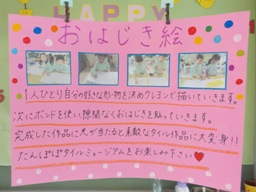 HAPPY
おはじき絵
1人ひとり自分の好きな形や物を決めクレヨンで描いていきます。
次にボンドを使い隙間なくおはじきを貼っていきます。
完成した作品に光が当たると素敵なタイル作品に大変身!!
たんぽぽタイルミュージアムをお楽しみ下さい♥